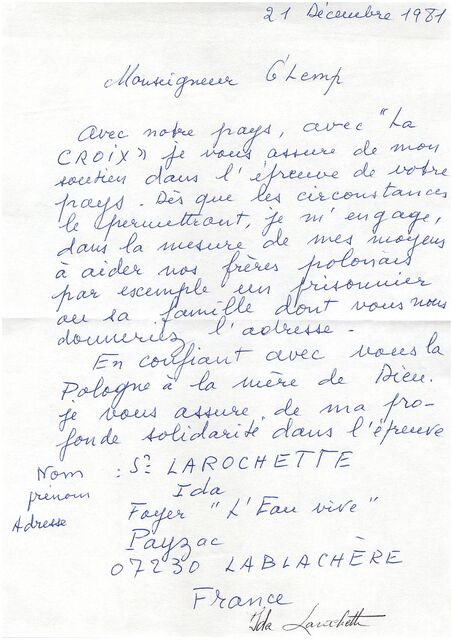 21 Décembre 1981
Monseigneur G'Lemp
Avec notre pays, avec "La
CROIX» je vous assure de mon
soutien dans l'épreuve de votre
pays. Dès que les circonstances
le permettront, je m'engage,
dans la mesure de mes moyens
à aider nos frères polonais
par exemple un prisonnier
ou sa famille dont vous nous
donneriez l'adresse.
En confiant avec vous la
Pologne à la mère de Dieu.
je vous assure de ma pro-
fonde solidarité dans l'épreuve
Nom : Sr LAROCHETTE
prénom Ida
Adresse Foyer "L'Eau vive"
Payzac
07230 LABLACHÈRE
France
Ida Larochette